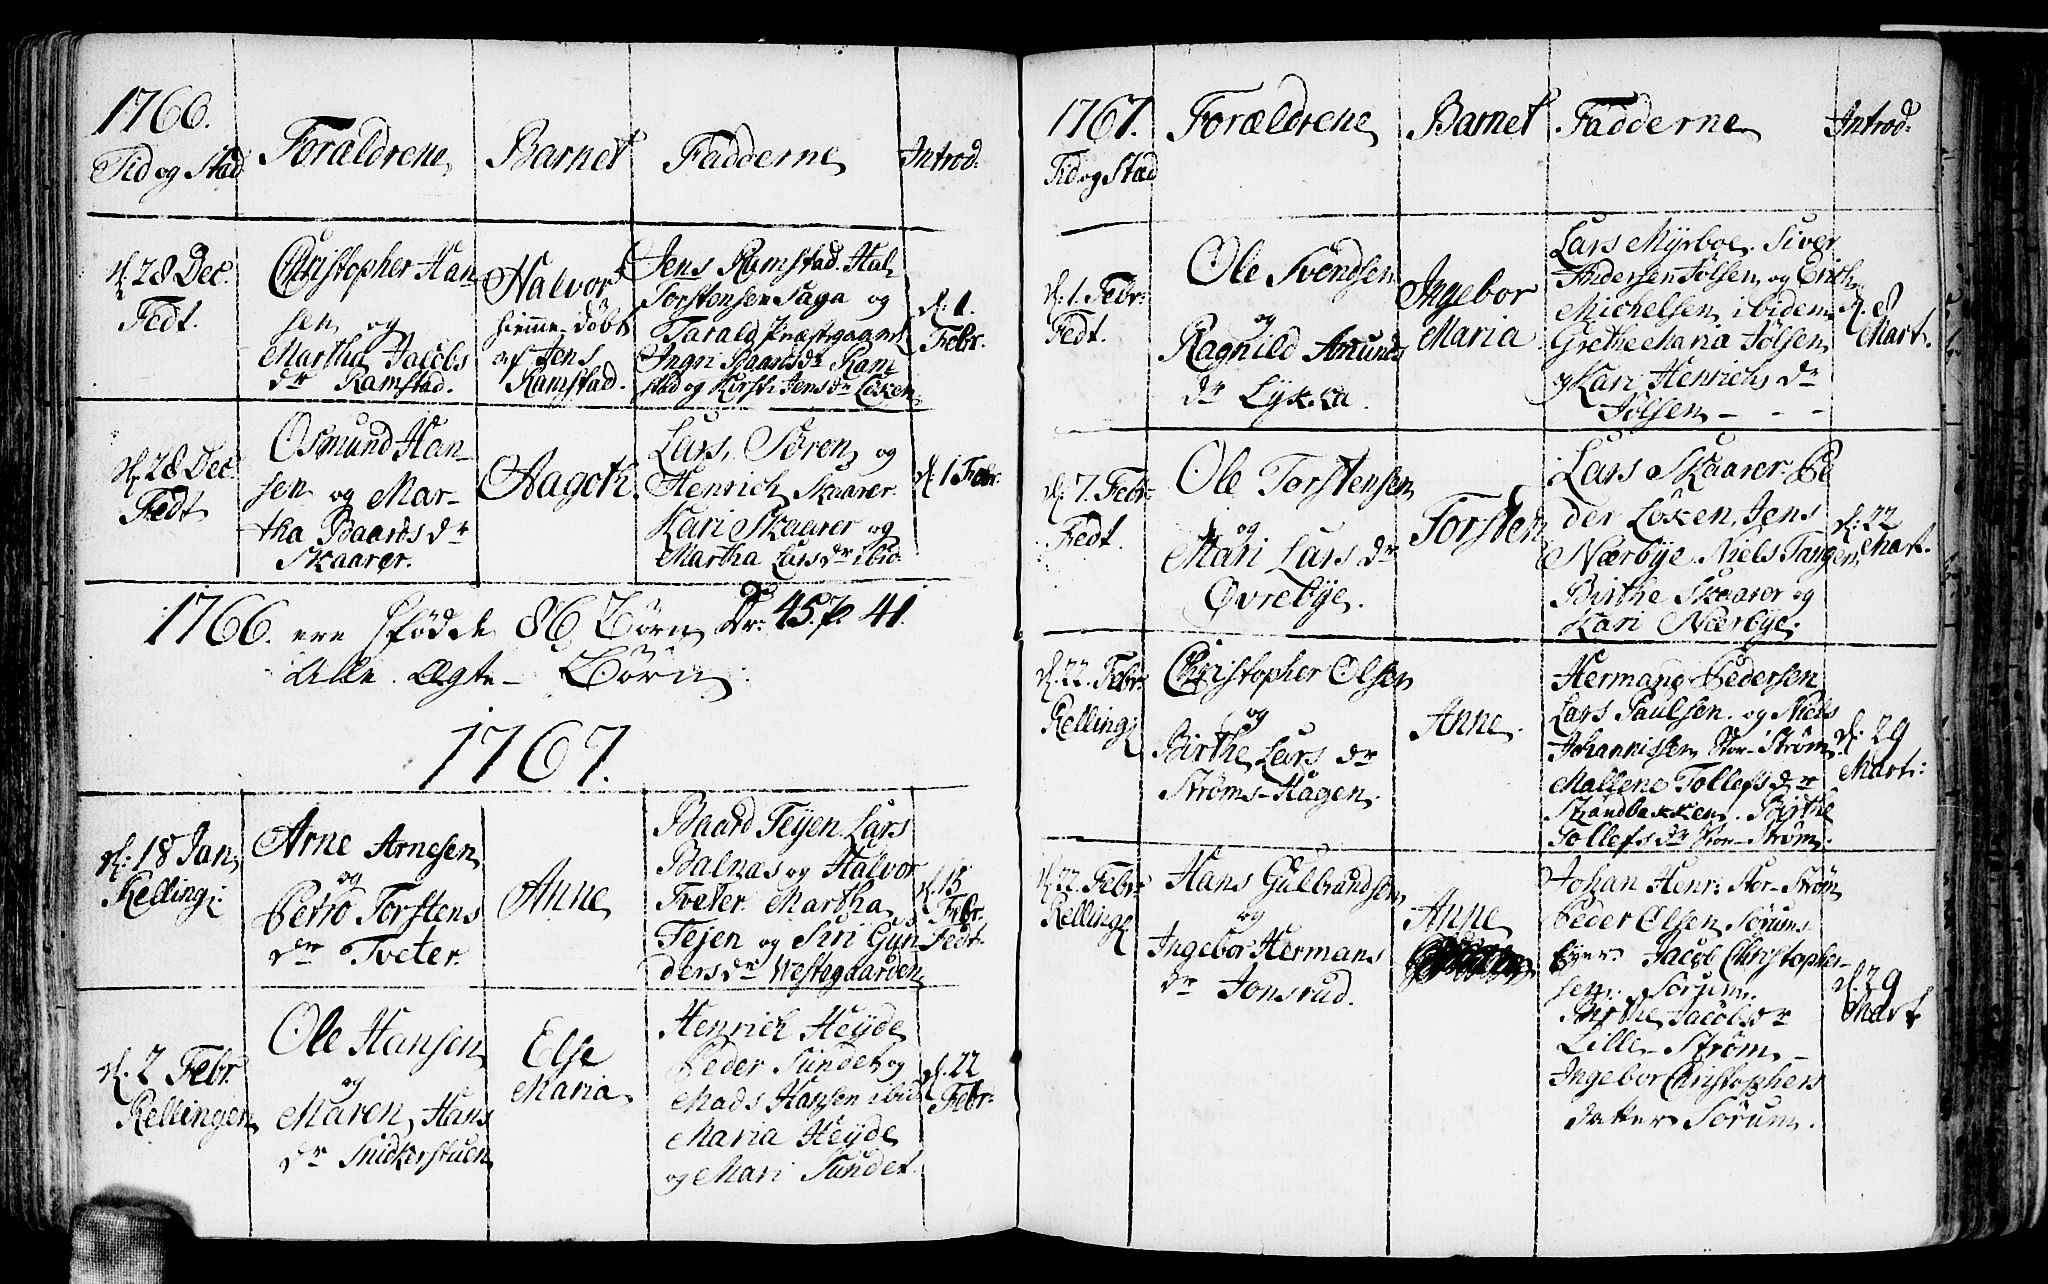 1766.
Tid og Stad
Forældrene
Barnet
Fadderne
Introd:
d. 28 Dec.
Fedt.
Christopher Han
sen og
Martha Jacobs
dr Ramstad.
Halvor
hiemme-döbt
af Jens
Ramstad.
Jens Ramstad. Hal
Torstensen Saga og
Tarald Præstegaard
Ingri Baardsdr Ram
stad og Kirsti Jensdr Löken
d: 1.
Febr.
d. 28 Dec.
Fedt
Osmund Han-
sen og Mar-
tha Baardsdr
Skaarer.
Aagoth
Lars, Sören og
Henrich Skaarer.
Kari Skaarer og
Martha Larsdr ibid.
d. 1 Febr.
1766. ere födde 86 Börn Dr: 45. p. 41.
Alle Ægte-Börn.
1767.
d: 18 Jan.
Relling:
Arne Arnesen
og
Torstens
dr Tveter.
Anne
Baard Teijen. Lars
Balnas og Halvor
Tveter. Martha
Tejen og Siri Gun
dersdr Westegaarden
d. 15
Febr.
Fedt.
d. 2 Febr.
Rellingen
Ole Hansen
og
Maren Hans
dr Snidkerstuen
Else
Maria
Henrich Heyde
Peder Sundet og
Mads Hansen ibid.
Maria Heyde
og Mari Sundet.
d. 22
Febr:
1767.
Tid og Stæd
Forældrene
Barnet
Fadderne
Introd:
d. 1. Febr:
Fedt.
Ole Svendsen
og
Ragnild Amunds
dr Lykka.
Ingebor
Maria.
Lars Myrboe. Siver
Andersen Jölsen og Erich
Michelsen ibidem
Grethe Maria Jölsen
og Kari Henrichs dr
Jölsen - - -
d. 8
Mart.
d. 7. Febr:
Fedt.
Ole Torstensen
og
Mari Lars dr
Øvrebye.
Torsten
Lars Skaarer. Pe
der Löken, Jens
Nærbye. Niels Tangen
Birthe Skaarer og
Kari Nærbye.
d: 22
Mart.
d. 22. Febr:
Relling:
Christopher Olsen
og
Birthe Lars dr
Ströms-Hagen.
Anne.
Hermand Pedersen
Lars Paulsen. og Niels
Johannissen Stor-Ström
Mallene Tollefsdr
Strandbakken. Birthe
Tollefsdr Stor-Ström.
d. 29
Mart:
d. 22. Febr:
Relling:
Hans Gulbrandsen
og
Ingebor Hermans
dr Jonsrud.
Anne
Johan Henr: Stor-Ström
Peder Olsen Sörums
Eyer Jacob Christopher-
sen Sörum.
Birthe Jacobsdr
Lille-Ström -
Ingebor Christophers
datter Sörum.
d. 29
Mart